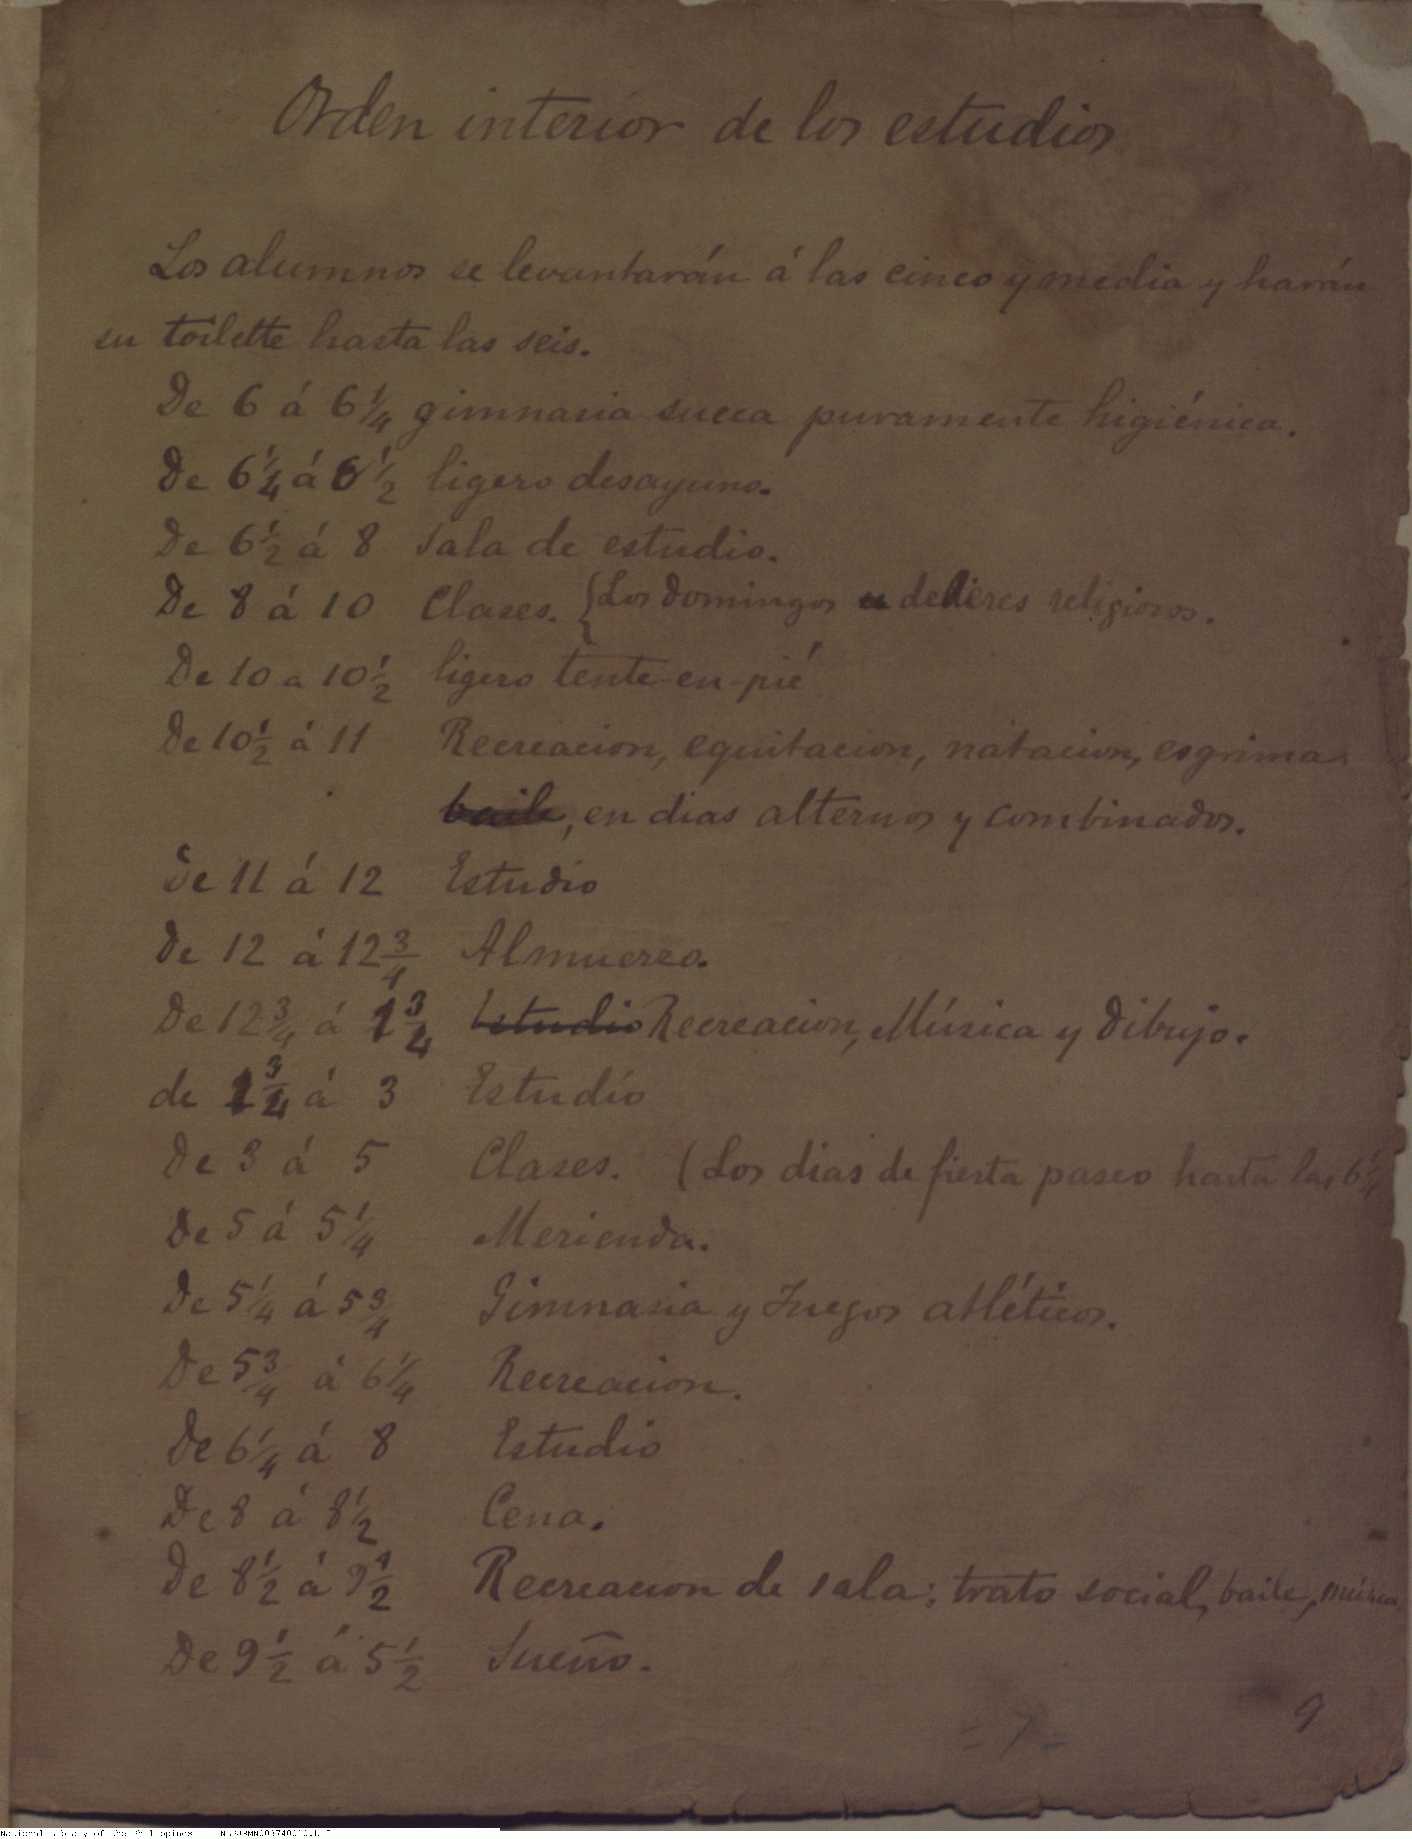 Orden interior de los estudios
Los alumnos se levantarán á las cinco y media y harán
su toilette hasta las seis.
De 6 á 6 1/4 gimnasia sueca puramente higiénica.
De 6 1/4 á 6 1/2 ligero desayuno.
De 6 1/2 á 8 Sala de estudio.
De 8 á 10 Clases. {Los Domingos deberes religiosos.
De 10 a 10 1/2 ligero tente-en-pié
De 10 1/2 á 11 Recreacion, equitacion, natacion, esgrima
baile, en dias alternos y combinados.
De 11 á 12 Estudio
De 12 á 12 3/4 Almuerzo.
De 12 3/4 á 1 3/4 Estudio Recreacion, Música y Dibujo.
de 1 3/4 á 3 Estudio
De 3 á 5 Clases. (Los dias de fiesta paseo hasta las 6 1/4
De 5 á 5 1/4 Merienda.
De 5 1/4 á 5 3/4 Gimnasia y Juegos atléticos.
De 5 3/4 á 6 1/4 Recreacion.
De 6 1/4 á 8 Estudio
De 8 á 8 1/2 Cena.
De 8 1/2 á 9 1/2 Recreacion de sala; trato social, baile, música
De 9 1/2 á 5 1/2 Sueño.
9
= 7 =
National Library of the Philippines